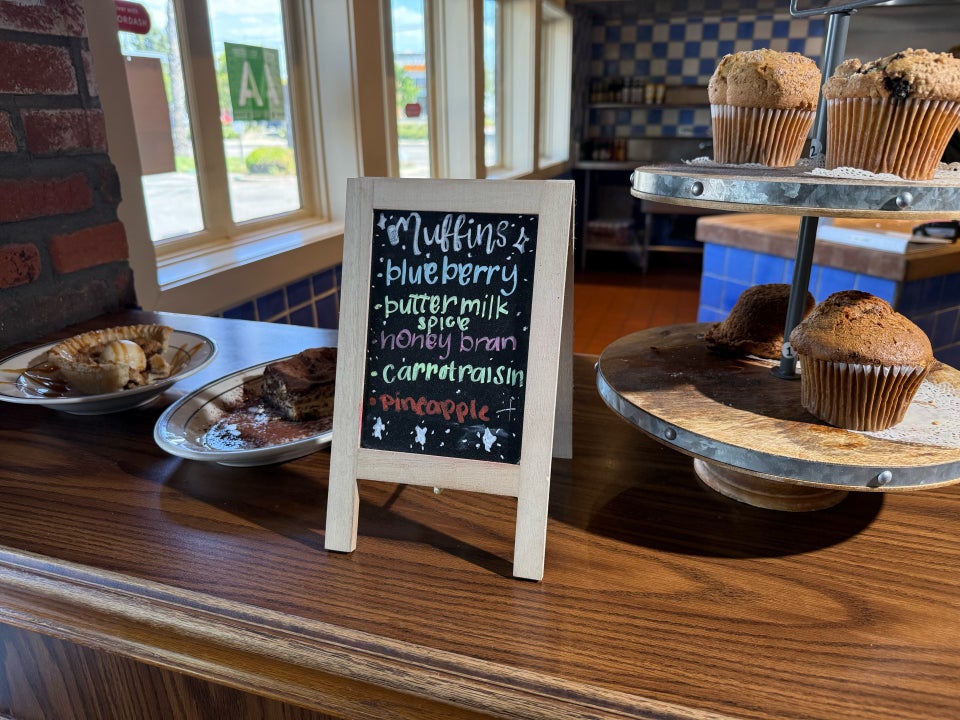 DOORDASH
A
Muffins
• blueberry
• buttermilk
spice
• honey bran
• carrot raisin
• pineapple